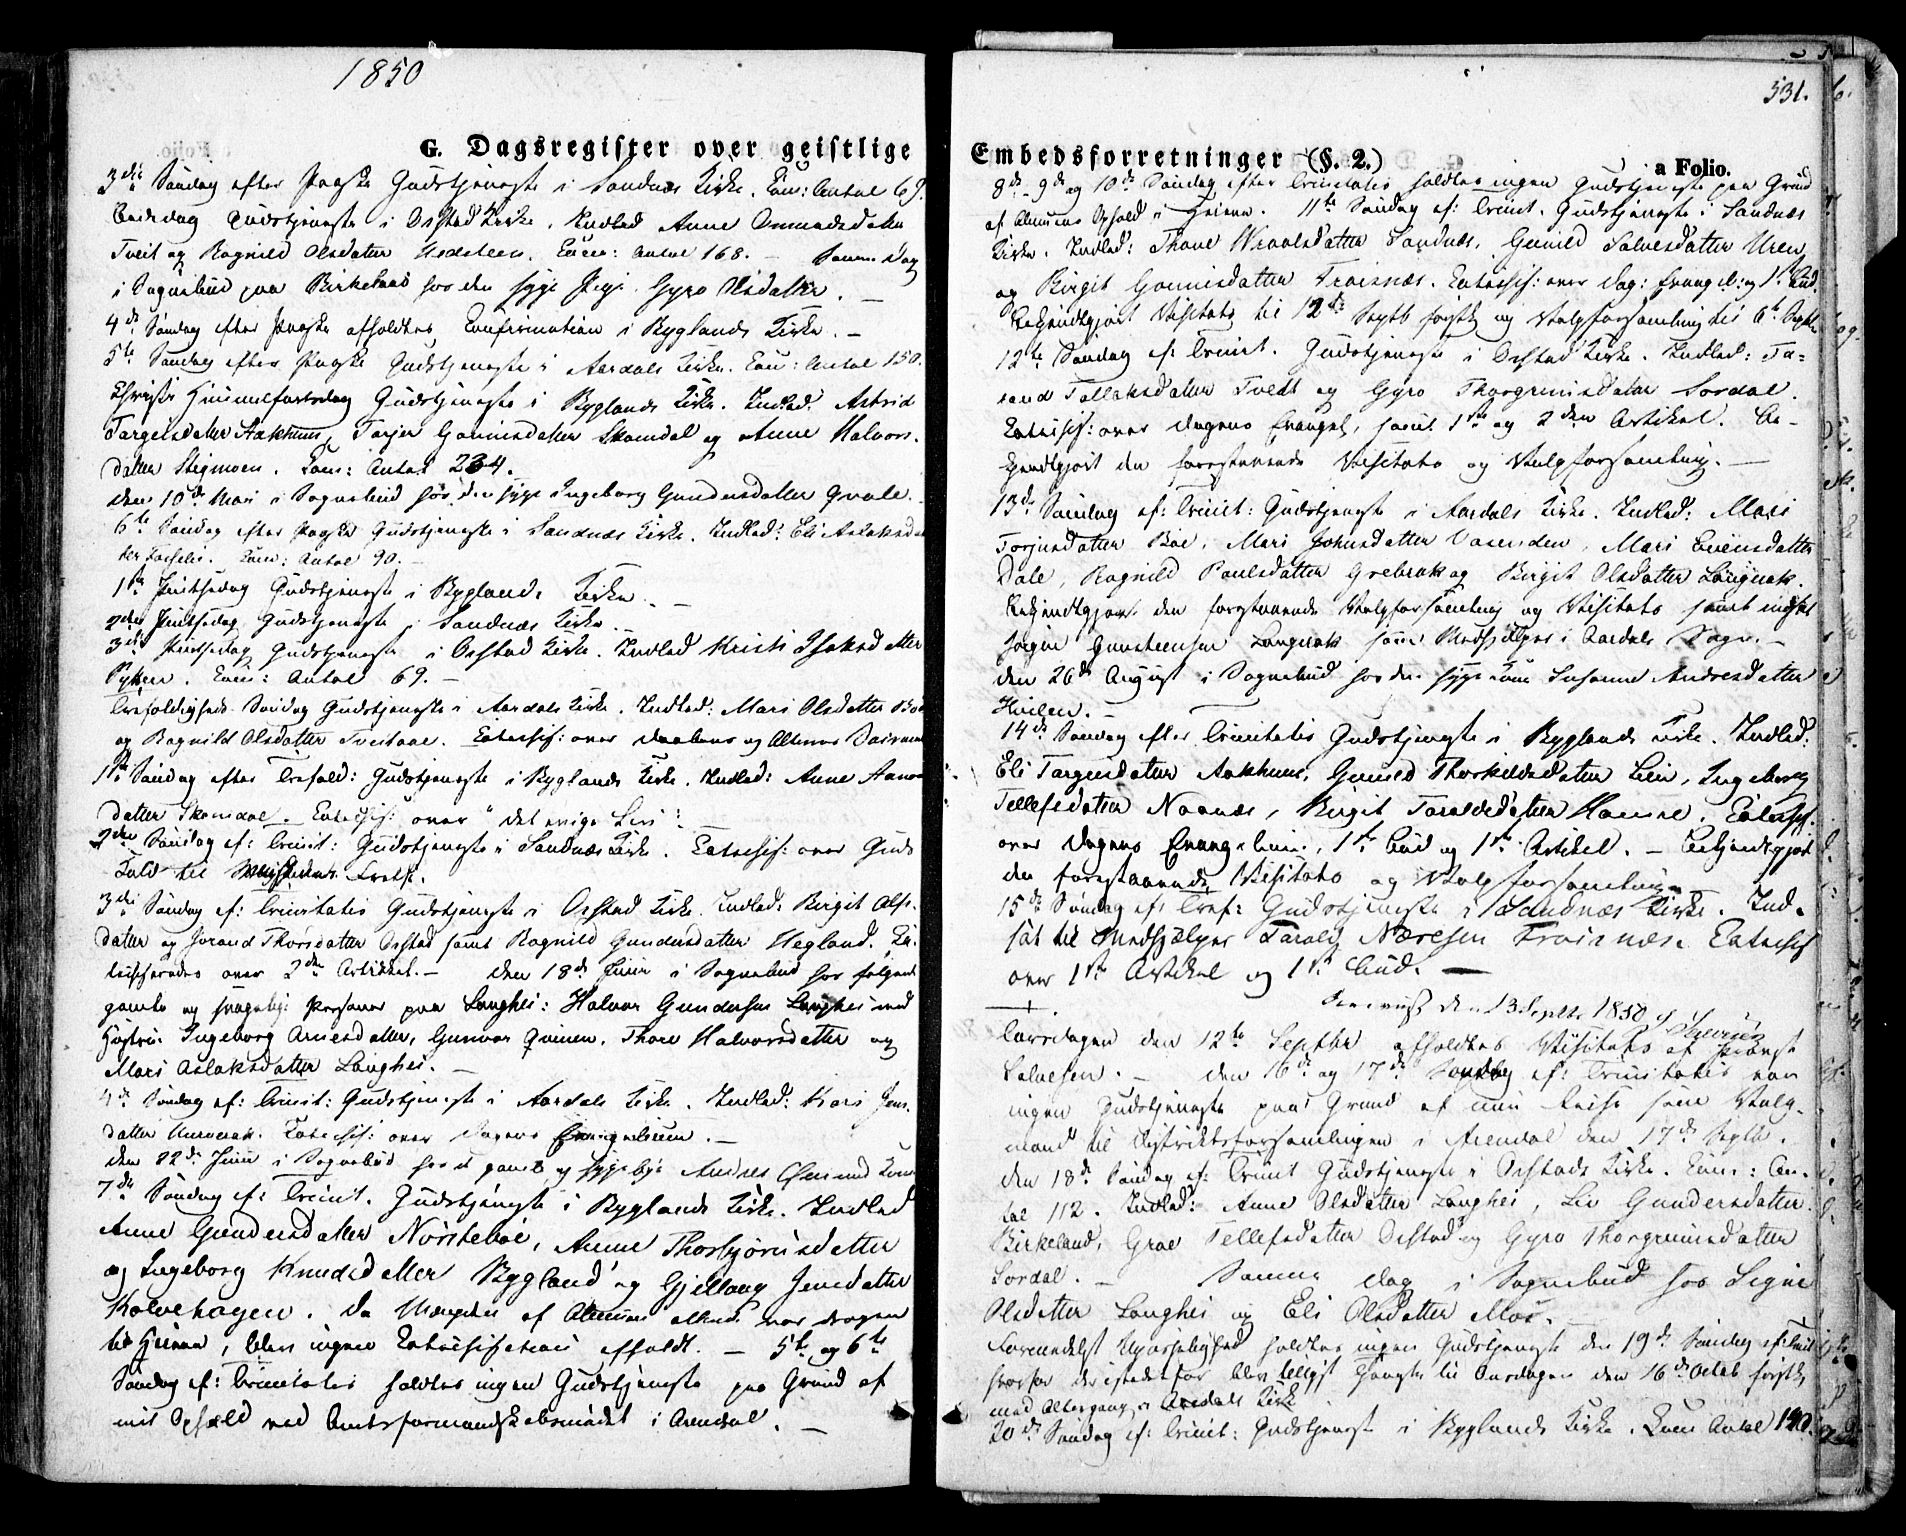 1850
G. Dagsregister over geistlige
3die Søndag efter Paaske Gudstjeneste i Sandnæs Kirke. Com: Antal 69.
Bededag Gudstjeneste i Ostad Kirke. Indled Anne Osmundsdatter
Tveit og Ragnild Olsdatter. Com: Antal 168. – Samme Dag
i Sognebud paa Birkeland hos den syge Pige Gyro Olsdatter. –
4de Søndag efter Paaske afholdtes Confirmation i Byglands Kirke. –
5te Søndag efter Paaske Gudstjeneste i Aardals Kirke. Com: Antal 150.
Christi Himmelfartsdag Gudstjeneste i Byglands Kirke. Indled. Astrid
Targeisdatter Aakhuus, Tarjer Gunnisdatter Skamdal og Anne Halvors-
datter Stegmoen. Com: Antal 234.
den 10de Mai i Sognebud hos den syge Ingeborg Gundersdatter Qvale.
6te Søndag efter Paaske Gudstjeneste i Sandnæs Kirke. Indled: Eli Aslaksdat
ter. Com: Antal 90. –
1ste Pintsedag Gudstjeneste i Byglands Kirke. –
2den Pintsedag Gudstjeneste i Sandnæs Kirke. –
3die Pintsedag Gudstjeneste i Ostad Kirke. Indled Kristi Isaksdatter
Com: Antal 69. –
Trefoldigheds Søndag Gudstjeneste i Aardals Kirke. Indled: Mari Olsdatter
og Ragnild Olsdatter Tveitaae. Catechis: over Daabens og Alterens
1ste Søndag efter Trefold: Gudstjeneste i Byglands Kirke. Indled: Anne
datter Skamdal. Catechis: over "det evige Liv".
2den Søndag ef: Trinit: Gudstjeneste i Sandnæs Kirke. Catechis: over Guds
Kald til Frelse.
3die Søndag ef: Trinitatis Gudstjeneste i Ostad Kirke. Indled: Birgit Ols-
datter og Jorand Thorsdatter Ostad samt Ragnild Gundersdatter Hegland. Ca-
techiseredes over 2den Artikkel. – den 18de Juni i Sognebud hos følgende
gamle og svagelige Personer paa Langhei: Halvor Gundersen Langhei med
Hustru Ingeborg Arnesdatter, Gunvor Qvinen, Thore Halvorsdatter og
Mari Aslaksdatter Langhei. –
4de Søndag ef: Trinit: Gudstjeneste i Aardals Kirke. Indled: Kari Jens-
datter. Catechis: over Dagens Evangelium. –
den 22de Juni i Sognebud hos
7de Søndag ef: Trinit. Gudstjeneste i Byglands Kirke. Indled
Anne Gundersdatter Nørsteböe, Anne Thorbjørnsdatter
og Ingeborg Knudsdatter Bygland og Gjellaug Jensdatter
Kolvehagen. Da Mængden af Almuen alt var dragen
til Heien, blev ingen Catechisation afholdt. – 5te og 6te
Søndag ef: Trinitatis holdtes ingen Gudstjeneste paa Grund af
mit Ophold ved Amtsformandskabsmødet i Arendal. –
531.
Embedsforretninger (§. 2.)
a Folio.
8de - 9de og 10de Søndag efter Trinitatis holdtes ingen Gudstjeneste paa Grund
af Almuens Ophold i Heiene. 11te Søndag ef: Trinit. Gudstjeneste i Sandnæs
Kirke. Indled: Thone Sandnæs, Gunild Salvesdatter Uren
og Birgit Gunnisdatter Froesnæs. Catechis: over Dag: Evangel: og 1ste Bud.
Bekjendtgjort Visitats til 12te Septb førstk og Valgforsamling til 6te Septbr
12te Søndag ef: Trinit. Gudstjeneste i Ostad Kirke. Indled: Ta-
rand Tallaksdatter Tvedt og Gyro Thorgrimsdatter Sordal.
Catechis: over dagens Evangel, samt 1ste og 2den Artikel. Be-
kjendtgjort den forestaaende Visitats og Valgforsamling. –
13de Søndag ef: Trinit: Gudstjeneste i Aardals Kirke. Indled: Mari
Torjusdatter Böe, Mari Johnsdatter Vasenden, Mari Evensdatter
Dale, Ragnild Paulsdatter Grebrok og Birgit Olsdatter Langerak.
Bekjendtgjort den forestaaende Valgforsamling og Visitats samt indsat
Gunsteensen Langerak som Medhjelper i Aardals Sogn. –
den 26de August i Sognebud hos den syge Susanne Andresdatter
Hvilen. –
14de Søndag efter Trinitatis Gudstjeneste i Byglands Kirke. Indled:
Eli Targeisdatter Aakhuus, Gunild Thorkildsdatter Lien, Ingeborg
Tellefsdatter Naanæs, Birgit Taraldsdatter Hamre. Catechis
over Dagens Evangelium, 1ste Bud og 1ste Artikel. – Bekjendtgjort
den forestaaende Visitats og Valgforsamling
15de Søndag ef: Tref: Gudstjeneste i Sandnæs Kirke. Ind-
sat til Medhjælper Tarald Næresen Froisnæs. Catechis
over 1ste Artikel og 1ste Bud. –
den 13 Septbr 1850
Torsdagen den 12te Septbr afholdtes Visitats af Provst
Salvesen. – den 16de og 17de Søndag ef: Trinitatis var
ingen Gudstjeneste paa Grund af min Reise som Valg-
mand til Distriktsforsamlingen i Arendal den 17de Septb.
den 18de Søndag ef: Trinit Gudstjeneste i Ostads Kirke. Com: An-
tal 112. Indled: Anne Olsdatter Langhei, Liv Gundersdatter
Birkeland, Groe Tellefsdatter Ostad og Gyro Thorgrimsdatter
Sordal. – Samme Dag i Sognebud hos Signe
Olsdatter Langhei og Eli Olsdatter Moe. –
Formedelst Upasselighed holdtes ingen Gudstjeneste den 19de Søndag ef: Trinit
hvorfor der istedetfor blev tillyst Tjeneste til Onsdagen den 16de Octob førstk,
med Altergang, i Aardals Kirke
20de Søndag ef: Trinit: Gudstjeneste i Byglands Kirke. Com Antal 190.